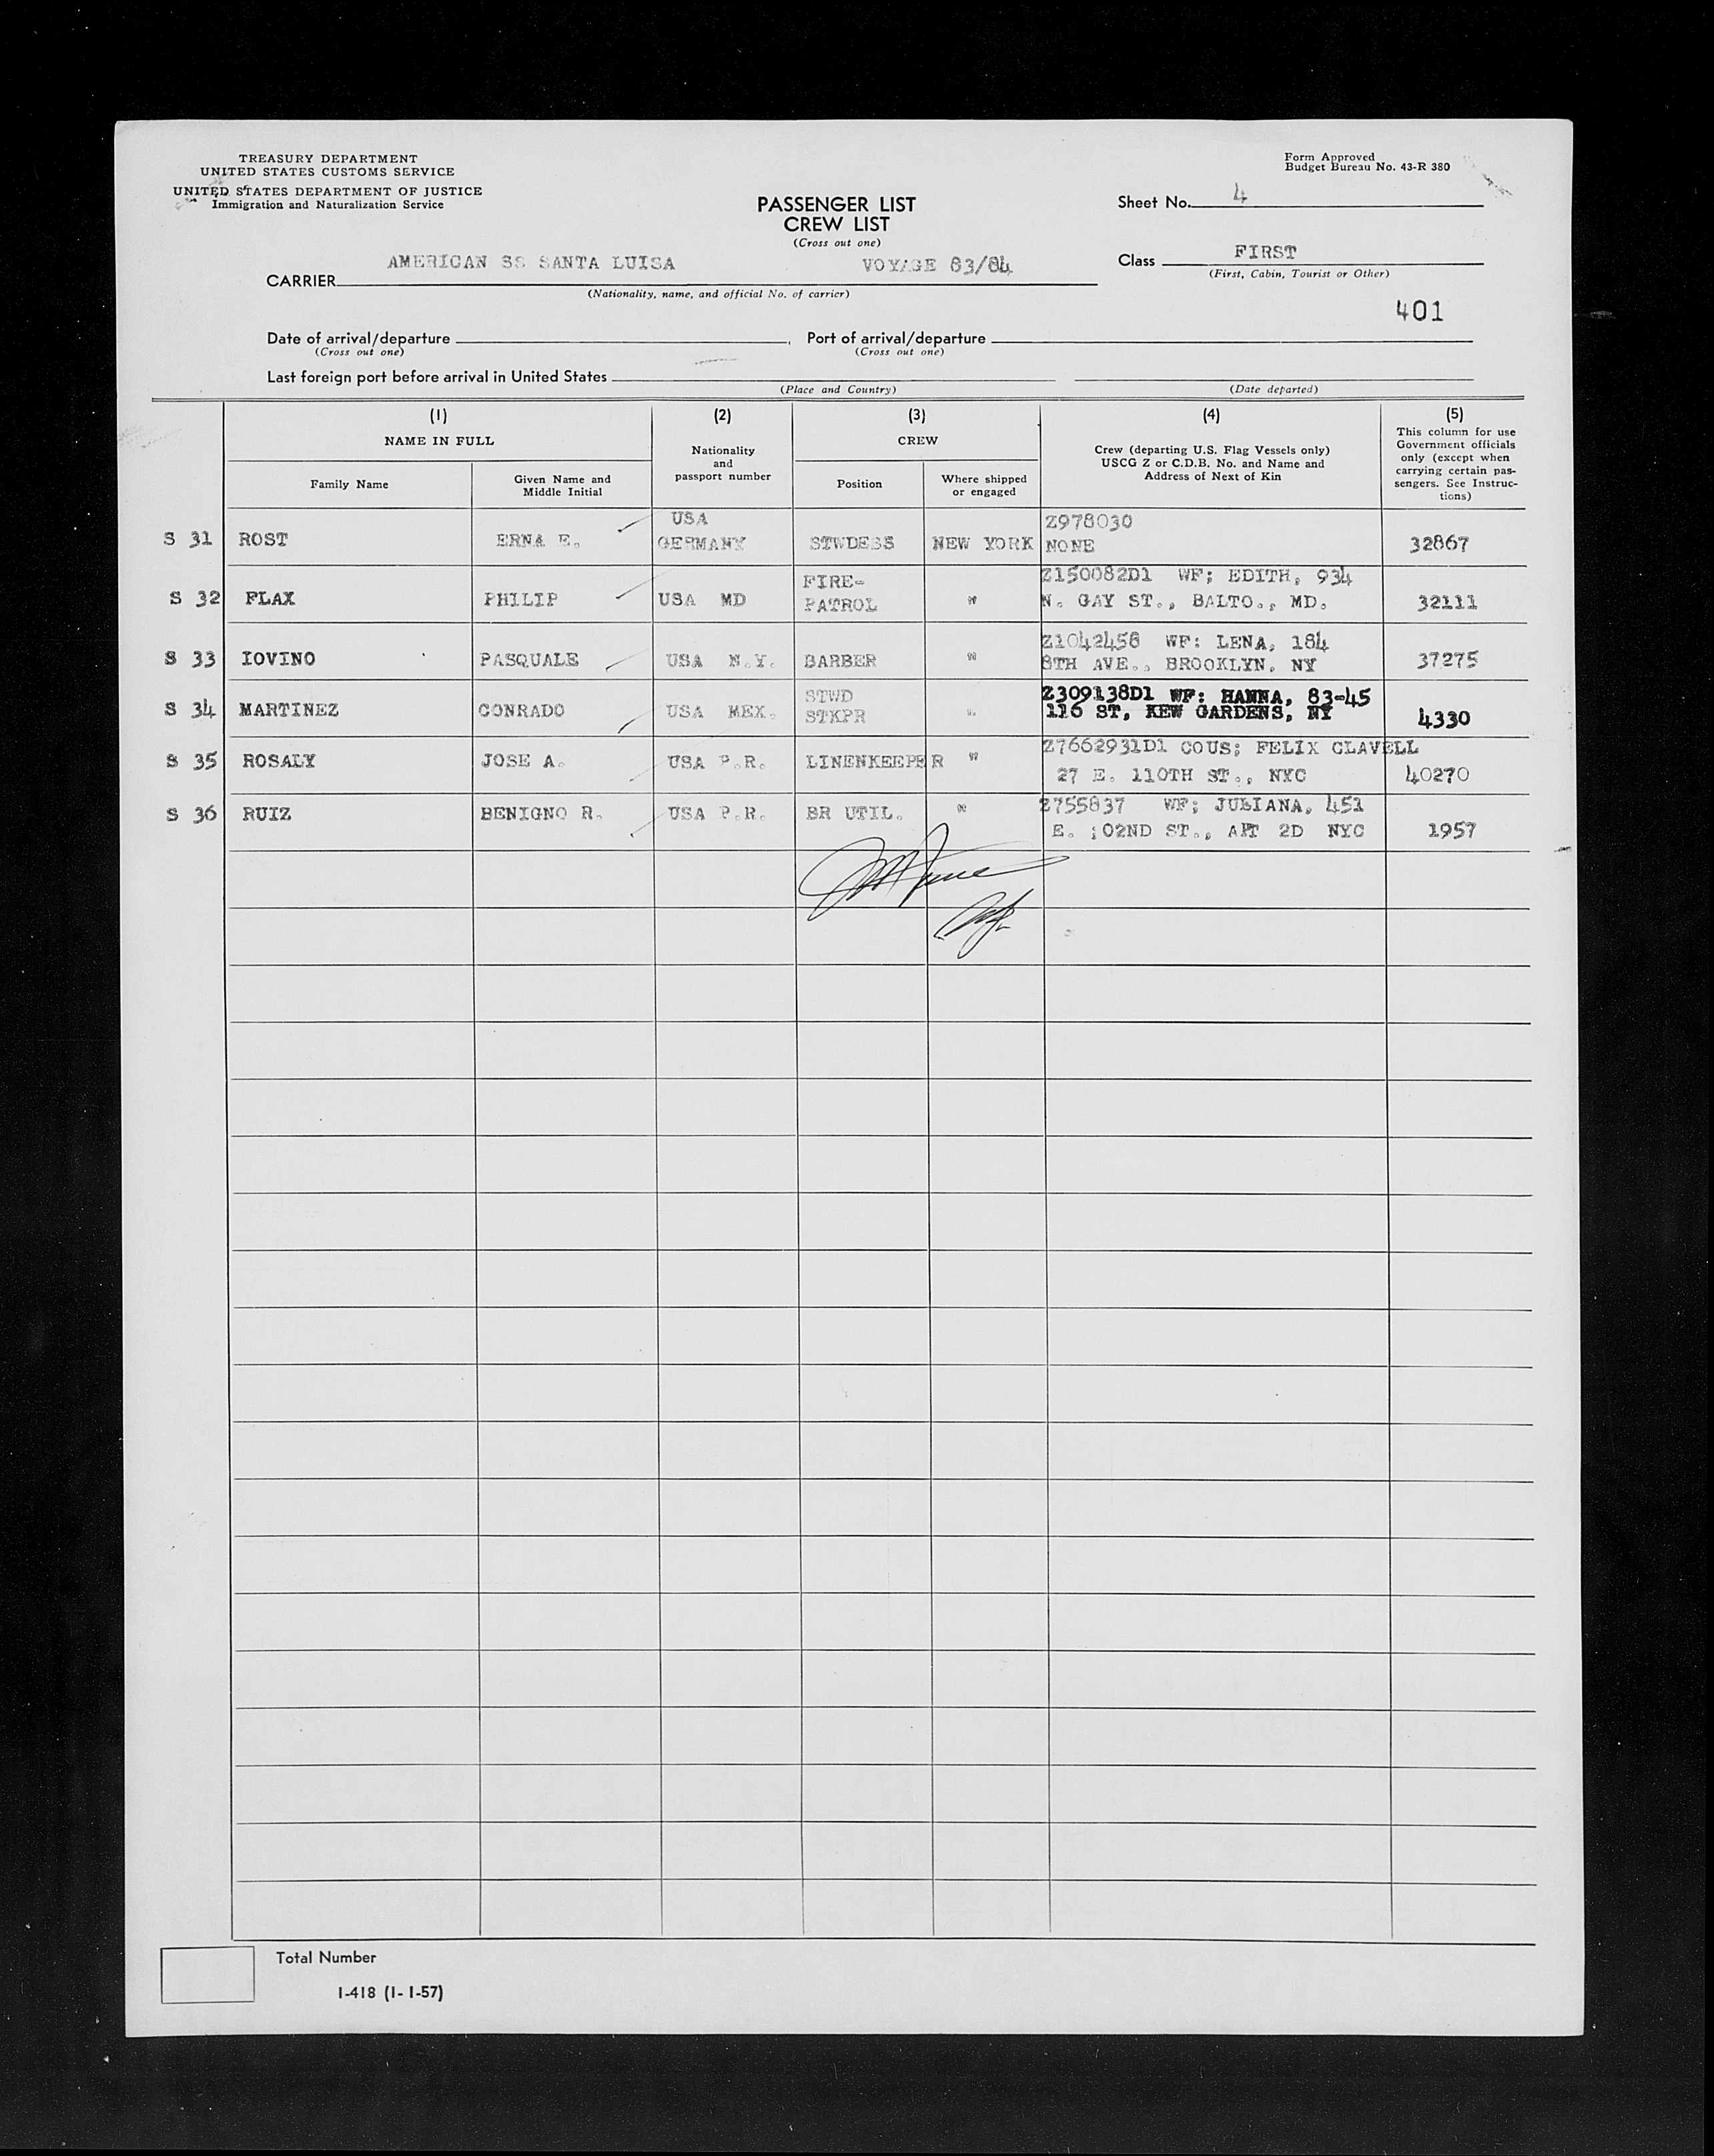 TREASURY DEPARTMENT
UNITED STATES CUSTOMS SERVICE
UNITED STATES DEPARTMENT OF JUSTICE
Immigration and Naturalization Service
Form Approved
Budget Bureau No. 43-R 380
PASSENGER LIST
CREW LIST
(Cross out one)
Sheet No. 4
CARRIER AMERICAN SS SANTA LUISA VOYAGE 83/84
(Nationality, name, and official No. of carrier)
Class FIRST
(First, Cabin, Tourist or Other)
401
Date of arrival/departure , Port of arrival/departure
(Cross out one) (Cross out one)
Last foreign port before arrival in United States
(Place and Country) (Date departed)
(1) (2) (3) (4) (5)
NAME IN FULL
Family Name
Given Name and
Middle Initial
Nationality
and
passport number
CREW
Position
Where shipped
or engaged
Crew (departing U.S. Flag Vessels only)
USCG Z or C.D.B. No. and Name and
Address of Next of Kin
This column for use
Government officials
only (except when
carrying certain pas-
sengers. See Instruc-
tions)
USA Z978030
S 31 ROST ERNA E. GERMANY STWDESS NEW YORK NONE 32867
FIRE- Z150082D1 WF; EDITH, 934
S 32 FLAX PHILIP USA MD PATROL " N. GAY ST., BALTO., MD. 32111
Z1042458 WF: LENA, 184
S 33 IOVINO PASQUALE USA N.Y. BARBER " 8TH AVE., BROOKLYN, NY 37275
STWD Z309138D1 WF: HANNA, 83-45
S 34 MARTINEZ CONRADO USA MEX. STKPR " 116 ST, KEW GARDENS, NY 4330
Z7662931D1 COUS; FELIX CLAVELL
S 35 ROSALY JOSE A. USA P.R. LINENKEEPER " 27 E. 110TH ST., NYC 40270
Z755837 WF; JULIANA, 451
S 36 RUIZ BENIGNO R. USA P.R. BR UTIL. " E. ;02ND ST., APT 2D NYC 1957
Total Number
I-418 (1-1-57)